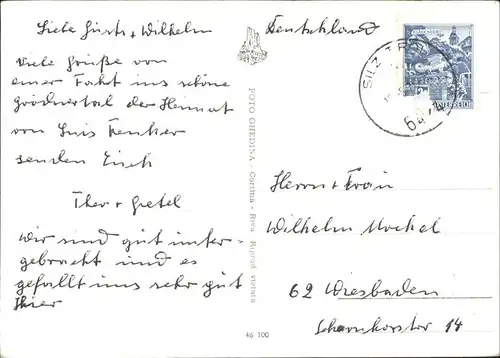 Liebe Gusti + Wilhelm
Viele Grüße von
einer Fahrt ins schöne
Grödnertal der Heimat
von Luis Trenker
senden Euch
Theo + Gretel
Wir sind gut unter-
gebracht und es
gefällt uns sehr gut
hier
FOTO GHEDINA - Cortina - Riva Riprod. vietata
46 100
Deutschland
SILZ TIROL
64
ÖSTERREICH
Herrn + Frau
Wilhelm
62 Wiesbaden
Scharnhorststr 14